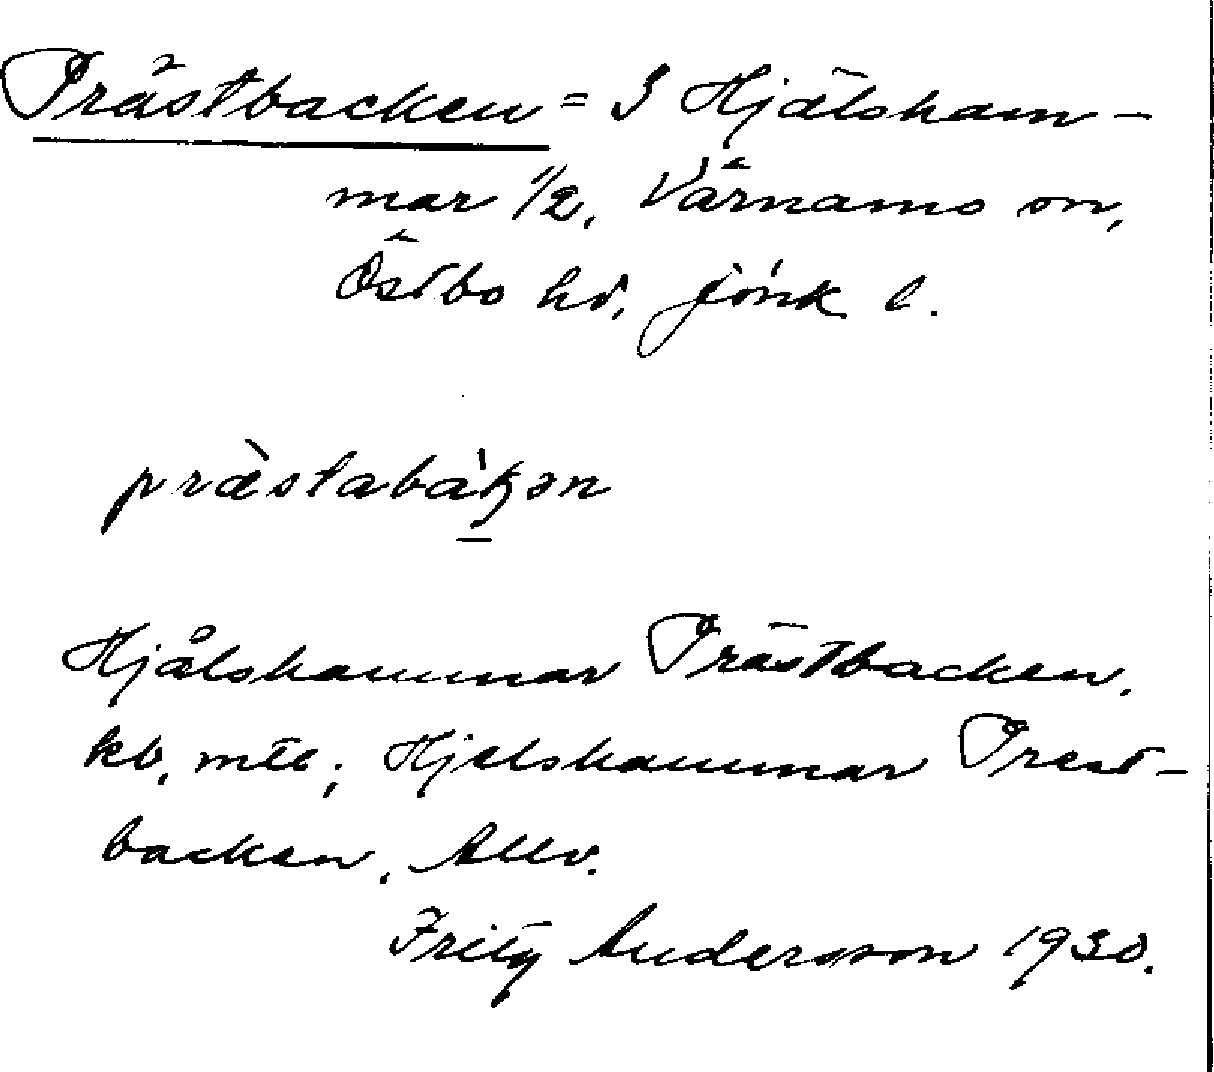 Prästbacken = I Hjälsham-
mar 1/2, Värnamo sn,
Östbo hd, Jönk l.
præ̀stabàkən
Hjälshammar Prästbacken,
kb, mtl; Hjelshammar Prest-
backen, Allv.
Fritz Andersson 1930.